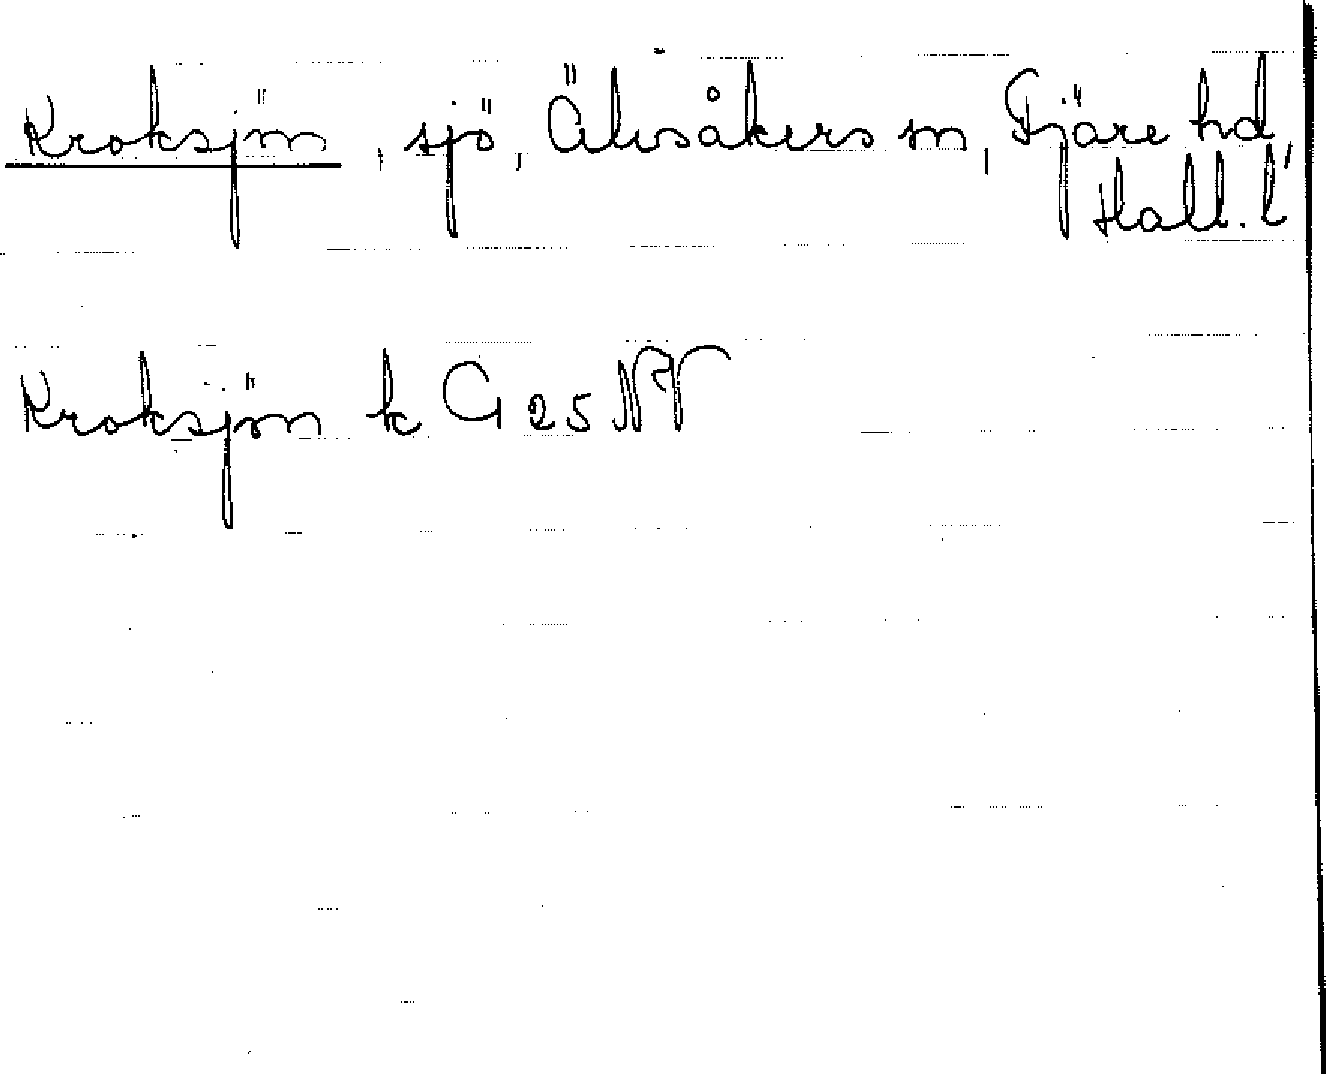 Kroksjön, sjö, Älvsåkers sn, Fjäre hd,
Hall. l
Kroksjön k G 25 NV